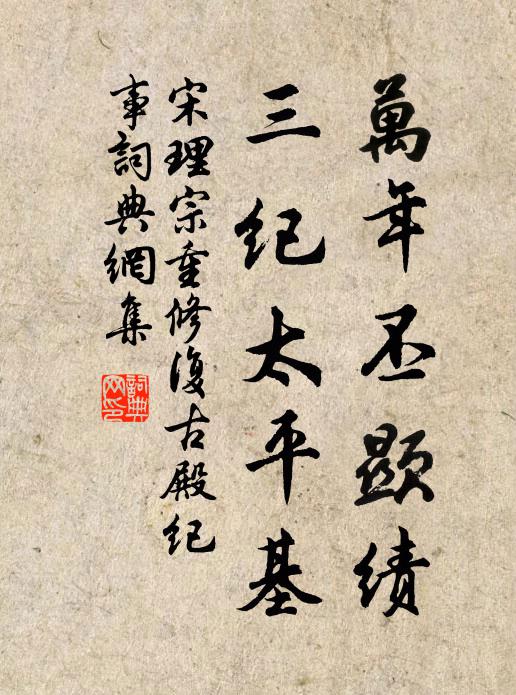 萬年丕顯績
三纪太平基
宋理宗重修復古殿纪
事詞典網集
詞典网印